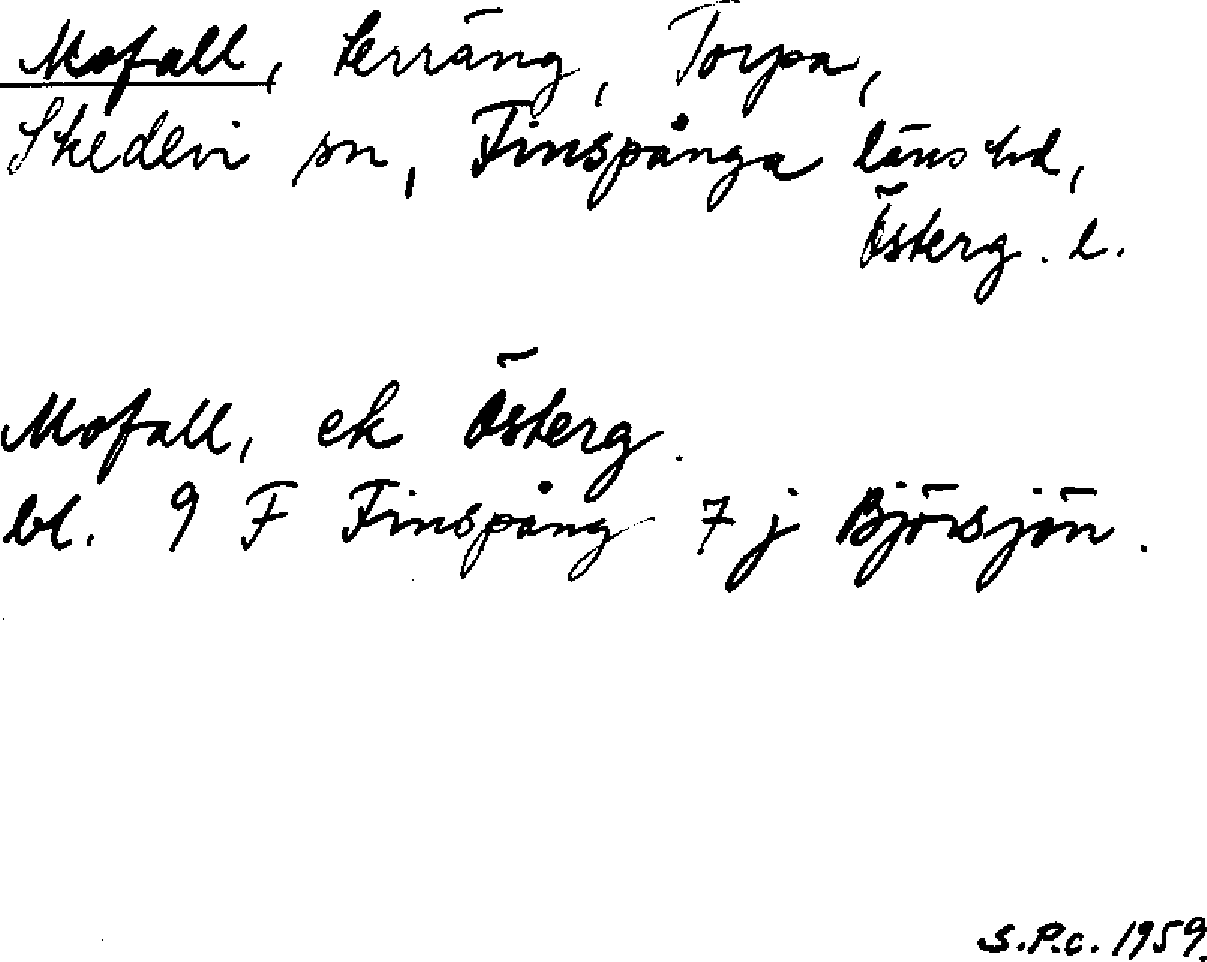 Mofall, terräng, Torpa,
Skedevi sn, Finspånga läns hd,
Österg. l.
Mofall, ek Österg.
bl. 9 F Finspång 7 j Björsjön.
S.P.C. 1959.